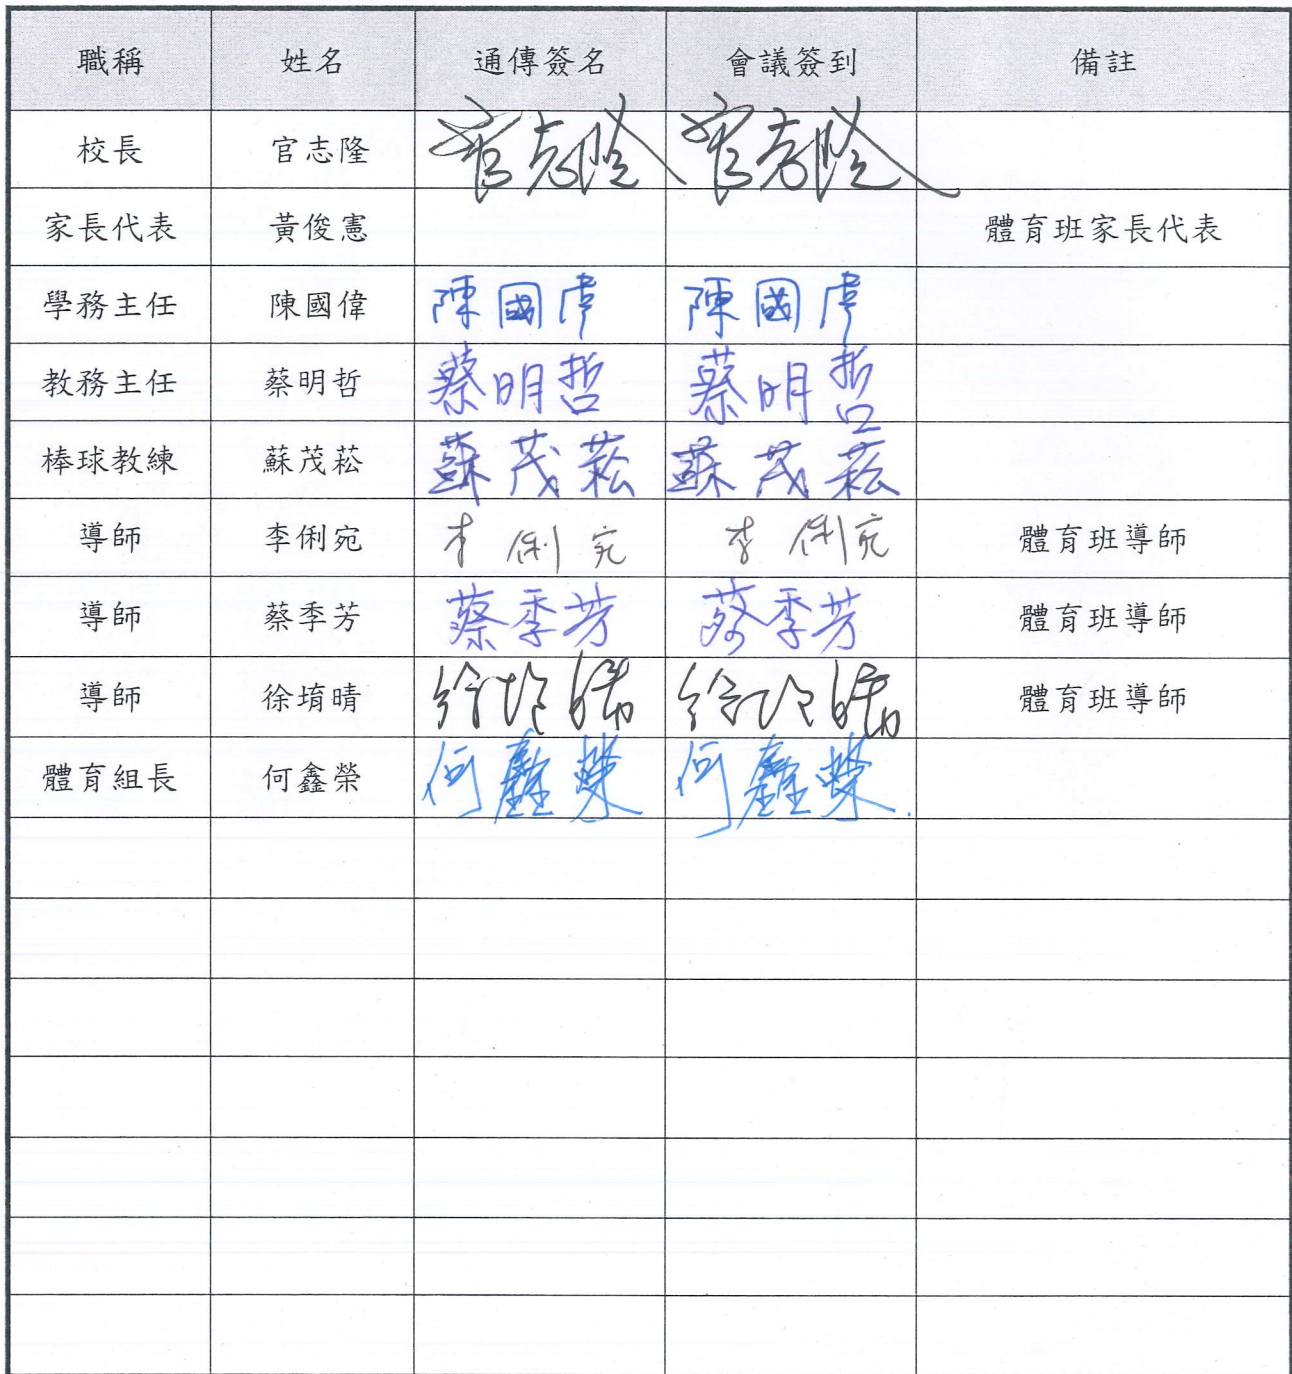 職稱 姓名 通傳簽名 會議簽到 備註
校長 官志隆 官志隆 官志隆
家長代表 黃俊憲 體育班家長代表
學務主任 陳國偉 陳國偉 陳國偉
教務主任 蔡明哲 蔡明哲 蔡明哲
棒球教練 蘇茂菘 蘇茂菘 蘇茂菘
導師 李俐宛 李俐宛 李俐宛 體育班導師
導師 蔡季芳 蔡季芳 蔡季芳 體育班導師
導師 徐堉晴 徐堉晴 徐堉晴 體育班導師
體育組長 何鑫榮 何鑫榮 何鑫榮